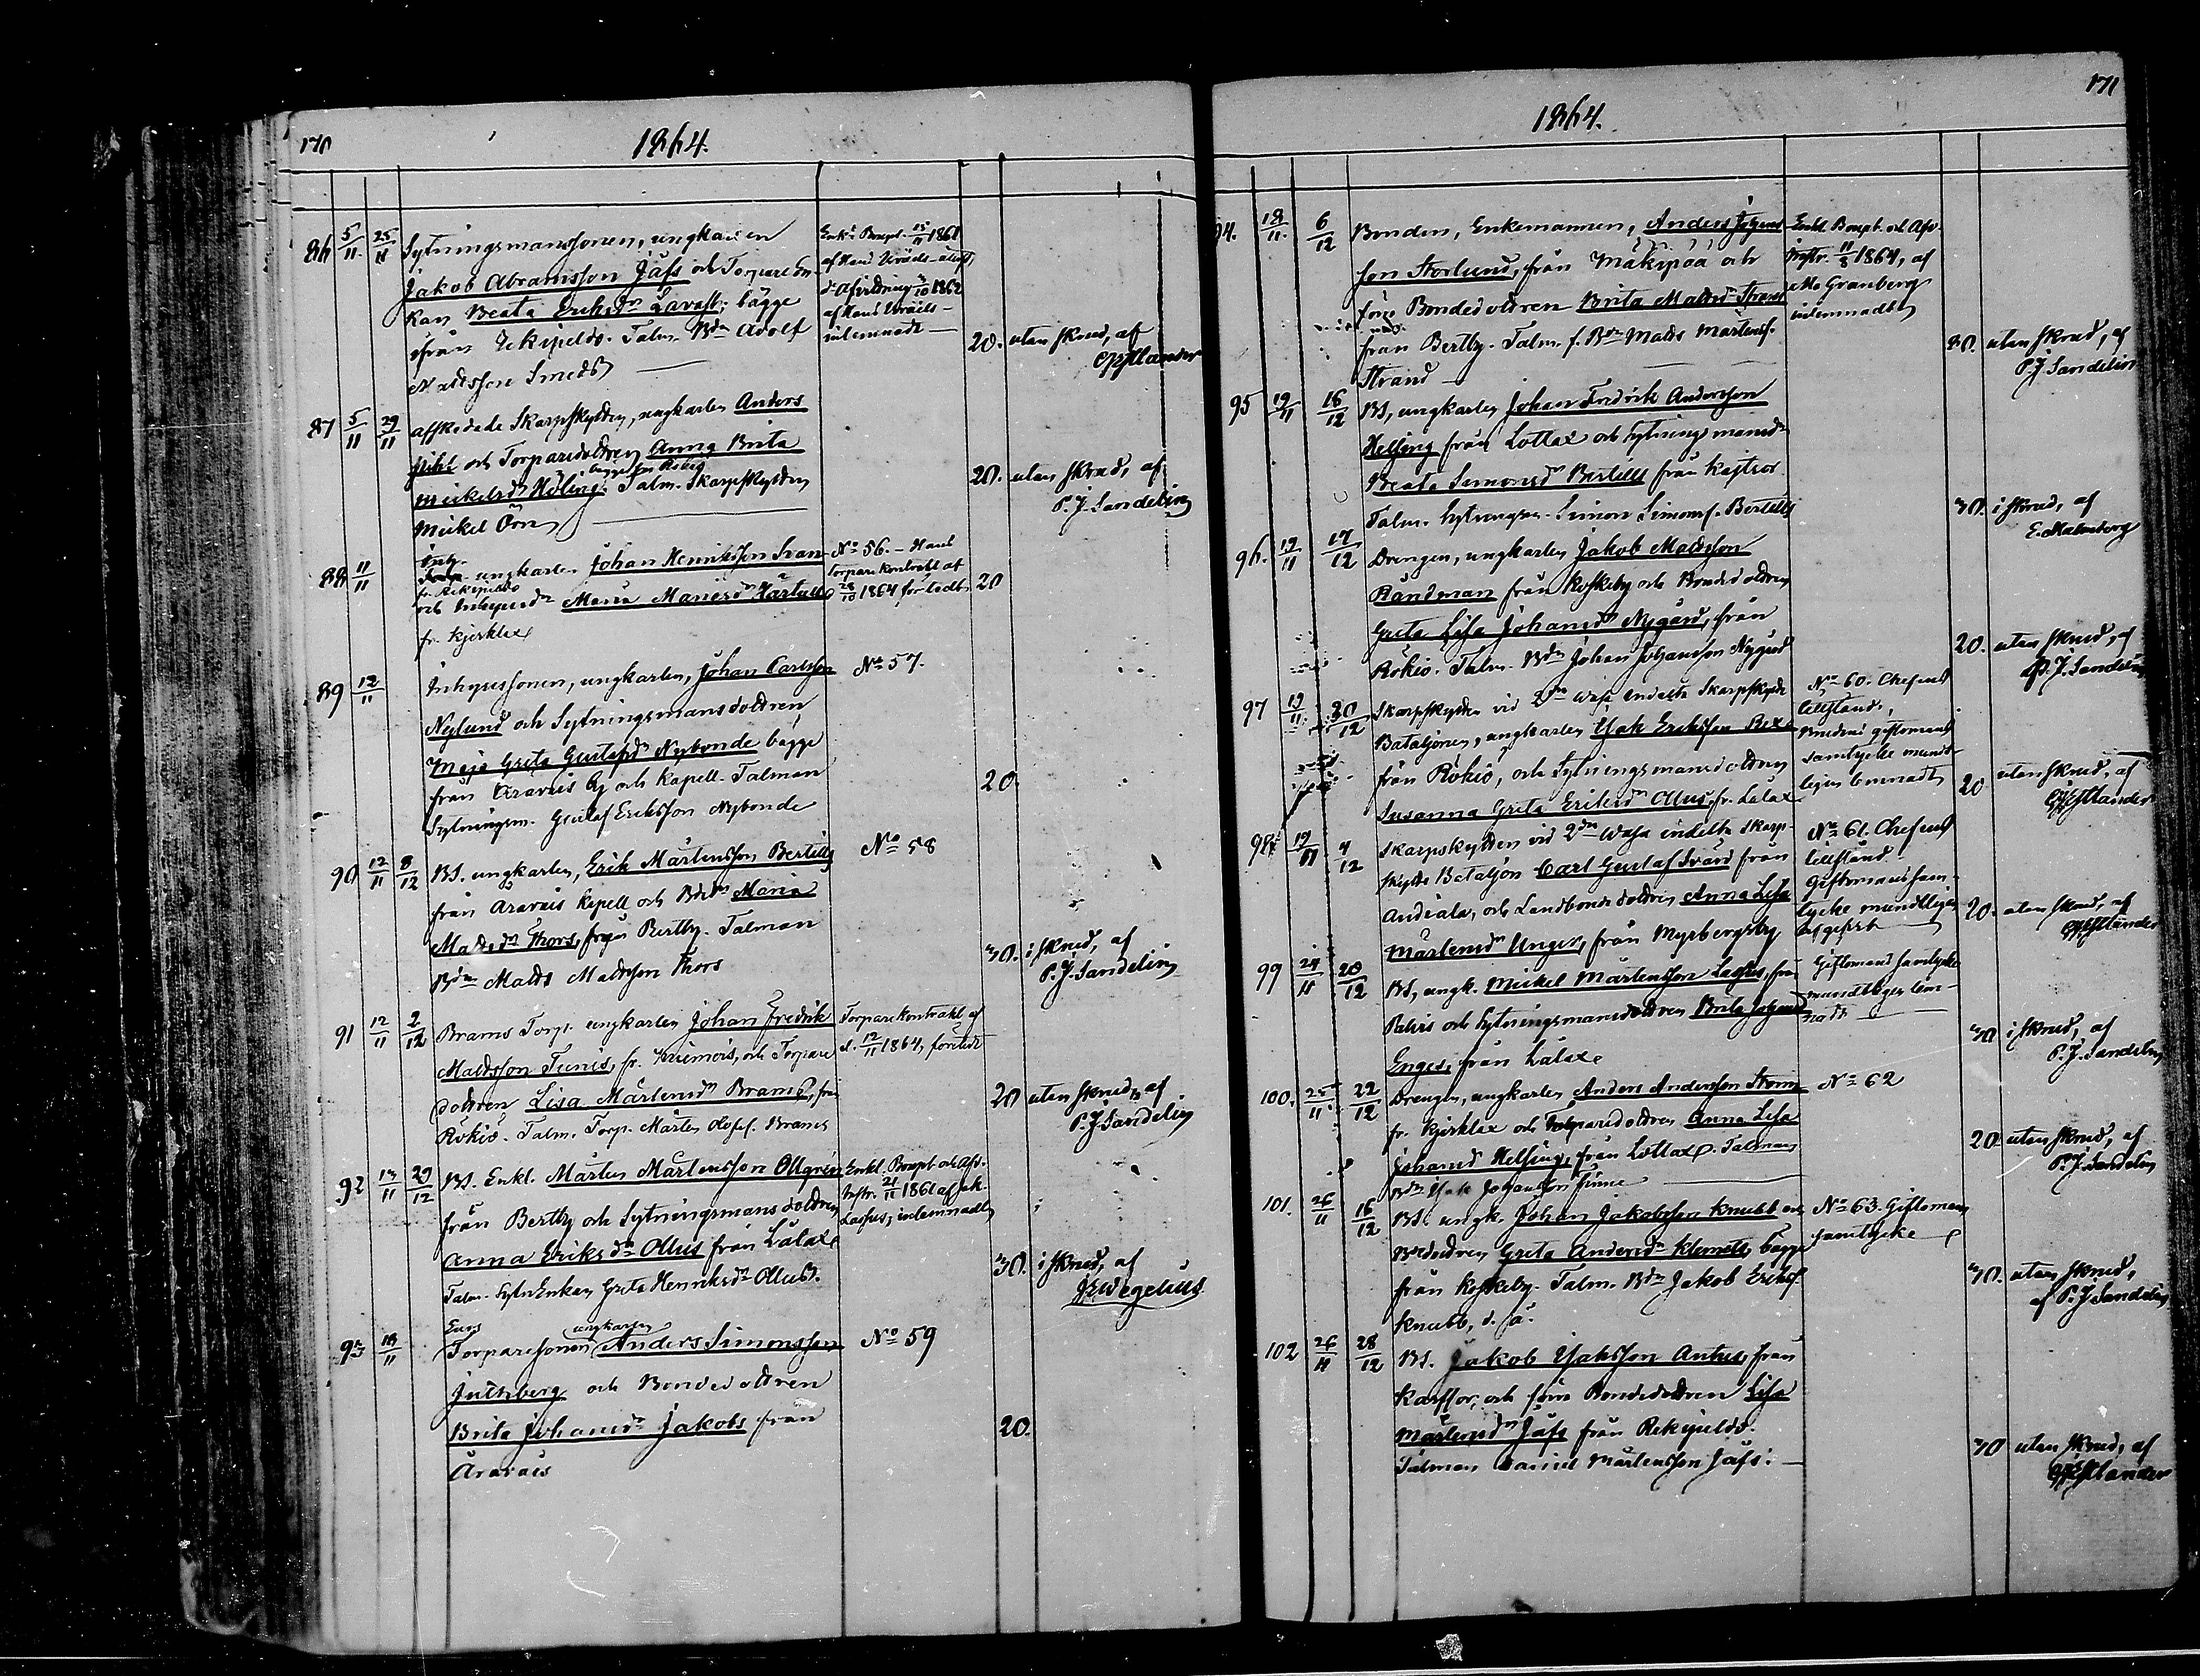 170
1864.
86 5/11 25/11 Sytningsmanssonen, ungkarlen
Jakob Abramsson Jäfs och Torpare En-
kan Beata Eriksdr Lavast, bägge
från Rekipeldo. Talm. Bdn Adolf
Mattsson Smeds
Enkl. Boupt. 1861
af Hans
Afvittring 1862
inlemnadt
20. utan skrud, af
87 5/11 29/11 afskedade Skarpskytten, ungkarlen Anders
Pihl och Torparedottren Anna Brita
Mickelsdr Höling. Talm. Skarpskytten
Mickel Örn
20. utan skrud, af
P. J. Sandelin
88 11/11 ungkarlen Johan Henriksson Svan
fr. Rekipeldo
och Inhysesdr Maria Mariasdr Hartull
fr. Kjerklax
No 56. - Hans
torparekontrakt af
28/10 1864, företedt
20
89 12/11 Inhysessonen, ungkarlen, Johan Carlsson
Nylund och Sytningsmansdottren
Maja Greta Gustafsdr Nybonde bägge
från Oravais By och Kapell. Talman
Sytningsm. Gustaf Eriksson Nybonde
No 57.
20.
90 12/11 8/12 BS. ungkarlen, Erik Mårtensson Bertills
från Oravais Kapell och Bdr Maria
Mattsdr Thors, från Bertby. Talman
Bdn Matts Mattsson Thors
No 58
30. i skrud, af
P. J. Sandelin
91 12/11 2/12 Brams Torp. ungkarlen Johan Fredrik
Mattsson Tunis, fr. Kimois, och Torpare
dottren Lisa Mårtensdr Brams, från
Rökiö. Talm. Torp. Mårten Olofss. Brams
Torparekontrakt af
d. 12/11 1864, företedt
20 utan skrud, af
P. J. Sandelin
92 13/11 29/12 BS. Enkl. Mårten Mårtensson Ollqvist
från Bertby och Sytningsmansdottren
Anna Eriksdr Ollus från Lålax
Talm. Sytn Enkan Greta Henriksdr Ollus.
Enkl. Boupt. och Afv.
Instr. 21/11 1861 af Jak.
Lasfus, inlemnadt
30. i skrud, af
Wegelius
93 18/11 Torparesonen ungkarlen Anders Simonsson
Juthberg och Bondedottren
Brita Johansdr Jakobs från
Oravais
No 59
20.
171
1864.
94. 18/11. 6/12 Bonden, Enkemannen, Anders Jöranss
son Storlund, från Mäkipää och
förre Bondedottren Brita Mattsdr Strand
från Bertby. Talm. f. Bdn Matts Mårtenss.
Strand
Enkl. Boupt. och Afv.
Instr. 11/8 1864, af
Mo Granberg
inlemnadt
20. utan skrud, af
P. J. Sandelin
95 19/11 16/12 BS, ungkarlen Johan Fredrik Andersson
Helsing från Lottax och Sytningsmansdr
Beata Simonsdr Bertills från Kajtsor
Talm. Sytningsm. Simon Simonss. Bertills
30. i skrud, af
E. Malmberg
96. 19/11 17/12 Drengen, ungkarlen Jakob Mattsson
Råndman från Koskeby och Bondedottren
Greta Lisa Johansdr Nygård, från
Rökiö. Talm. Bdn Johan Johansson Nygård
20. utan skrud, af
P. J. Sandelin
97 19/11 30/12 Skarpskytten vid 2dra Wasa Indelta Skarpskytte
Bataljonen, ungkarlen Isak Eriksson Rex
från Rökiö, och Sytningsmansdottren
Susanna Greta Eriksdr Ollus, fr. Lålax
No 60. Chefens
tillstånd,
Brudens giftomans
samtycke munt-
ligen lemnadt
20 utan skrud, af
98 19/11 4/12 Skarpskytten vid 2dra Wasa indelta Skarp-
skytte Bataljon Carl Gustaf Svärd från
Andiala, och Landbonde dottren Anna Lisa
Mårtensdr Unger, från Myrbergsby
No 61. Chefens
tillstånd
Giftomans sam-
tycke muntligen
afgifvet
20. utan skrud, af
99 24/11 20/12 BS, ungk. Mickel Mårtensson Lasfus, från
Palvis och Sytningsmansdottren Brita
Enges, från Lålax
Giftomans samtycke
muntligen lem-
nadt
30 i skrud, af
P. J. Sandelin
100. 25/11 22/12 Drengen, ungkarlen Anders Andersson Storm
fr. Kjerklax och Torparedottren Anna Lisa
Johansdr Helsing, från Lottax. Talman
Bdn Isak Johansson Finne
No 62
20 utan skrud, af
P. J. Sandelin
101. 26/11 16/12 BS. ungk. Johan Jakobsson Knubb och
Bdottren Greta Andersdr Klemets, bägge
från Koskeby. Talm. Bdn Jakob Erikss.
Knubb, d. ä.
No 63. Giftomans
samtycke
30. utan skrud,
af P. J. Sandelin
102 26/11 28/12 BS. Jakob Isaksson Antus, från
Karfsor, och förre Bondedottren Lisa
Mårtensdr Jäfs från Rekipeldo.
Talman Daniel Mårtensson Jäfs.
30 utan skrud, af